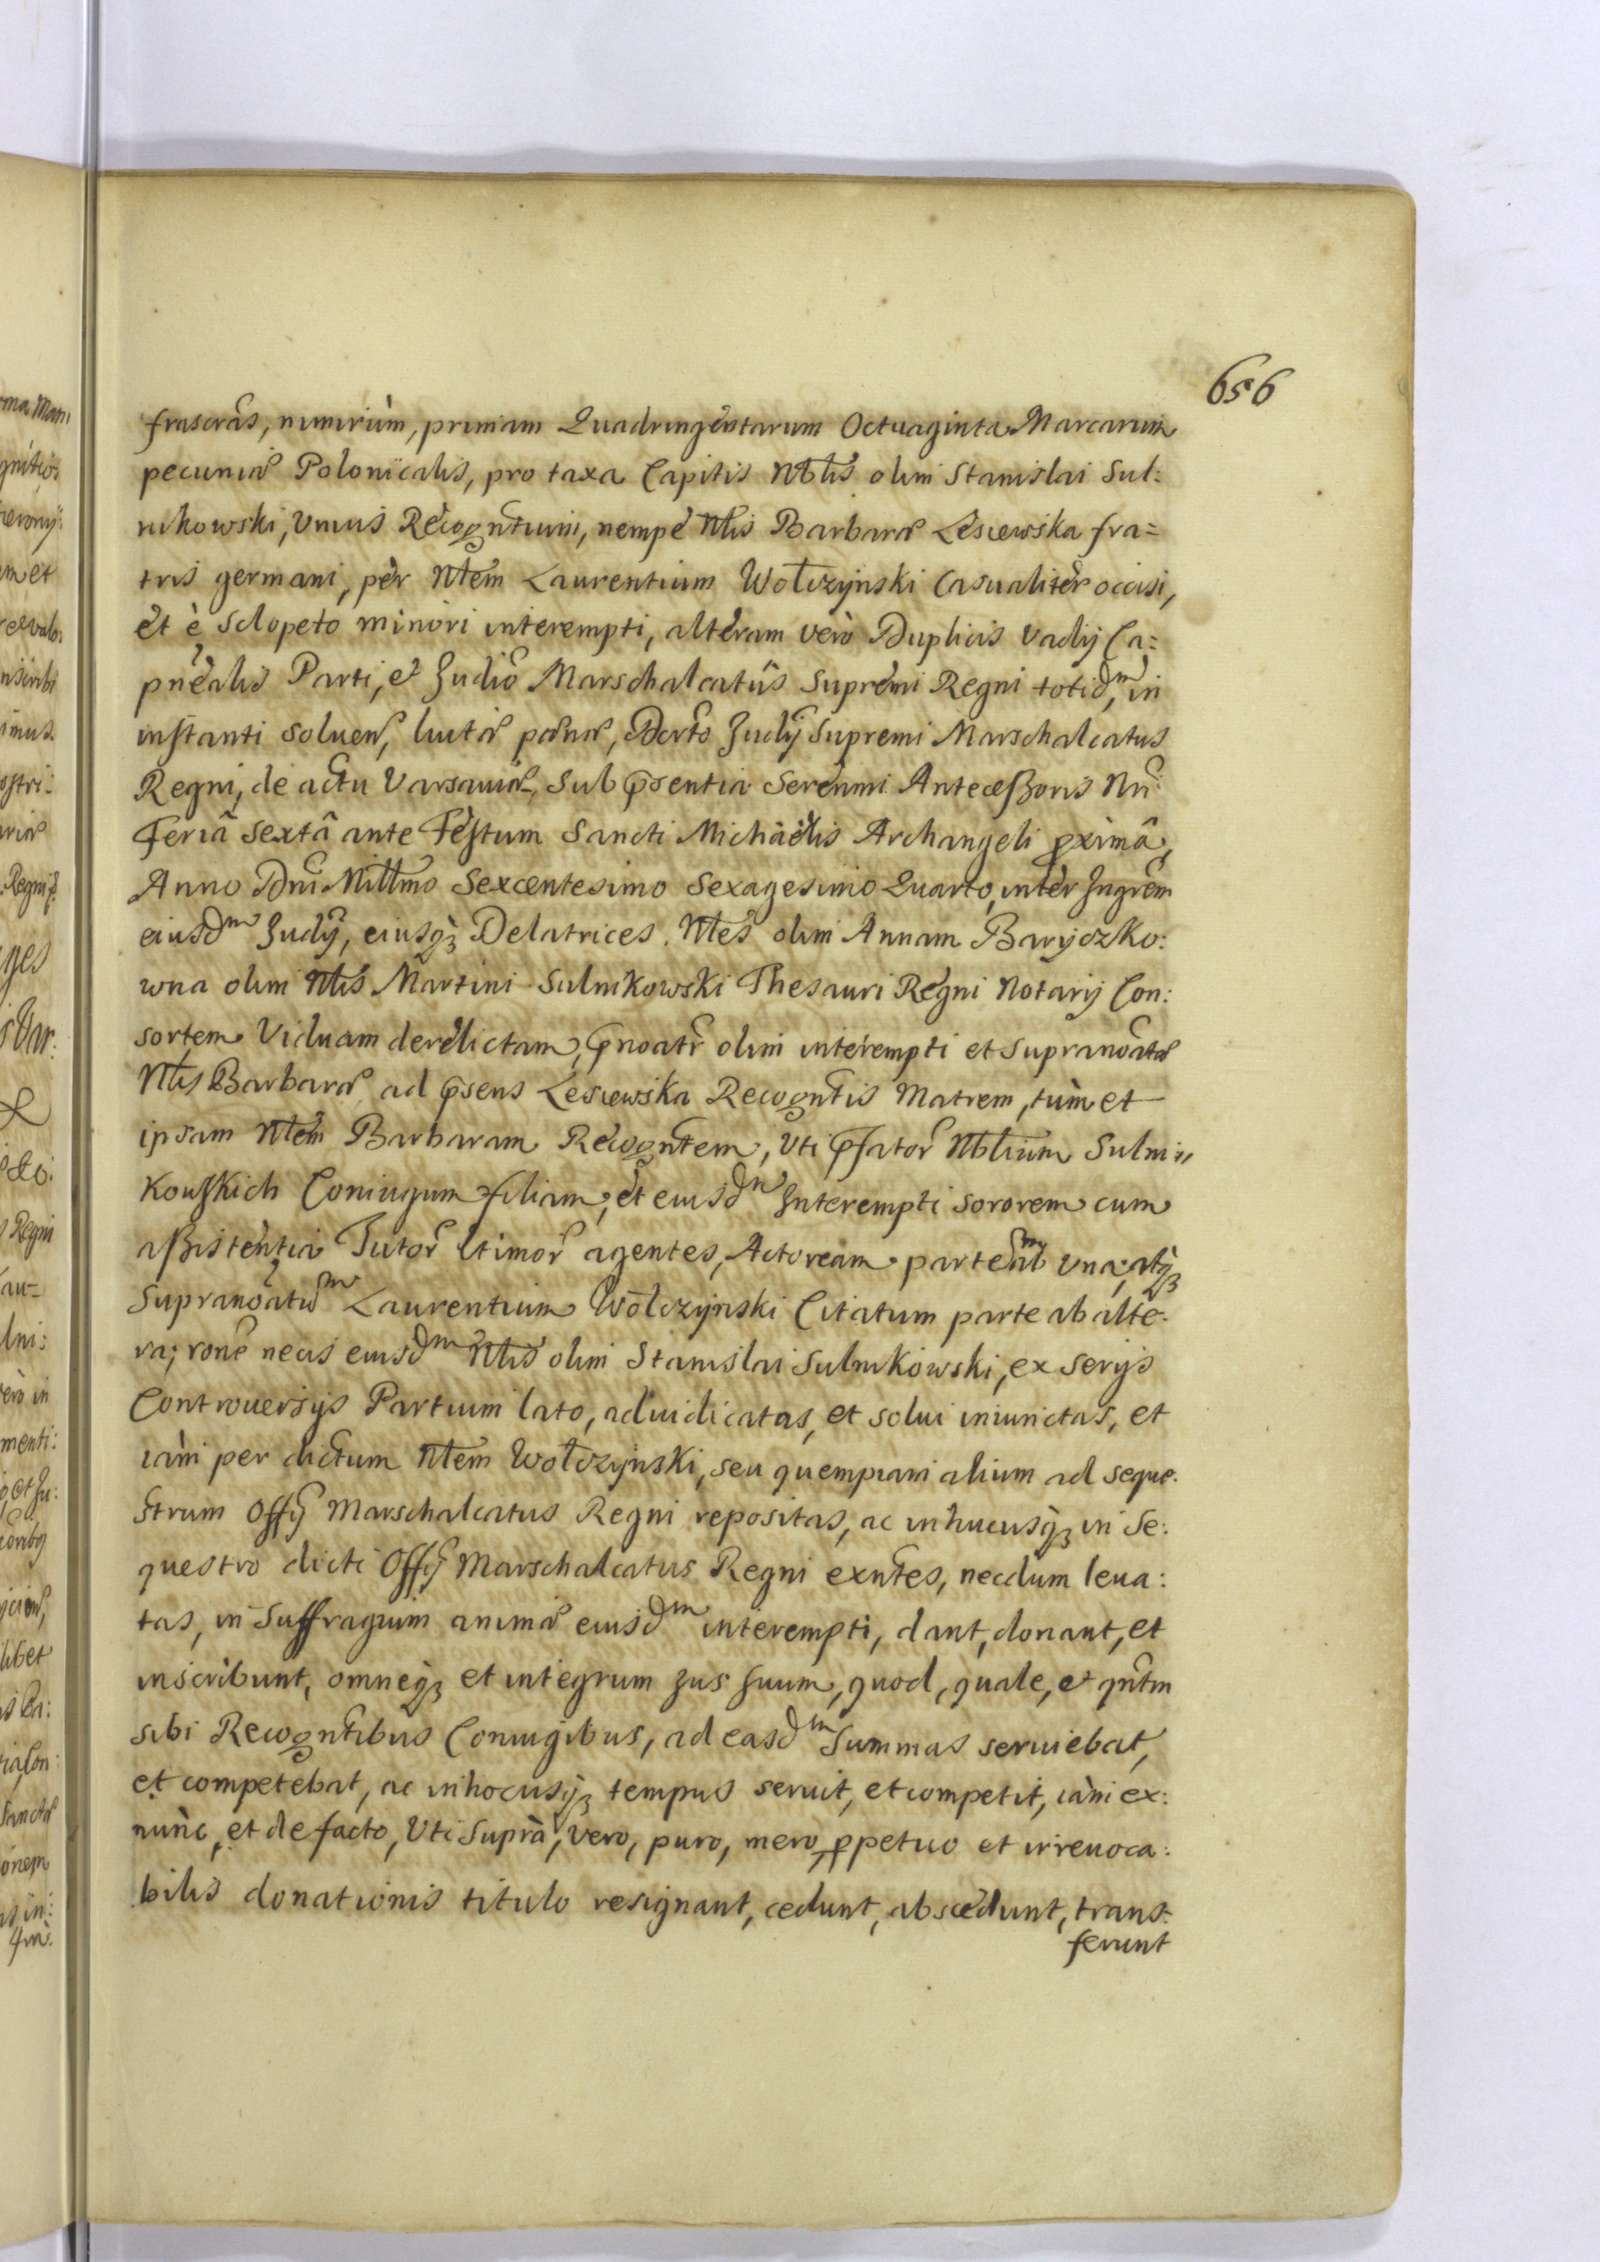 656
frascras, nimirùm, primam Quadringentarum Octuaginta Marcarum
pecuniæ Polonicalis, pro taxa Capitis Nblis olim Stanislai Sul:
nikowski, Unius Recogntium, nempè Nlis Barbaræ Lesiewska fra=
tris germani, pèr Nlem Laurentium Wołczynski Casualitèr occisi,
et è Sclopeto minori interempti, alteram verò Duplicis vadij Ca:
pnealis Parti, et Judio Marschalcatûs Supremi Regni totidm, in
instanti soluen, luitæ pænæ, Dcrto Judij Supremi Marschalcatus
Regni, de actu Varsauiæ, sub psentia Serenmi Antecessoris Nri
Feriâ Sextâ ante Festum Sancti Michäelis Archangeli pximâ,
Anno Dni Millmo Sexcentesimo Sexagesimo Quarto, intèr Ingrem
eiusdm Judij, eiusq3 Delatrices. Nles olim Annam Baryczko:
wna olim Nlis Martini Sulnikowski Thesauri Regni Notarij Con:
sortem Viduam derelictam, pnoatr olim interempti et supranoatæ
Nlis Barbaræ ad psens Lesiewska Recogntis Matrem, tùm et
ipsam Nlem Barbaram Recogntem, Uti pfator Nblium Sulni=
kowskich Coniugum filiam, et eiusdm Interempti sororem cum
assistentia Tutor ltimor agentes, Actoream partem ab una, atq3
Supranoatum Laurentium Wołczynski Citatum parte ab alte-
ra; rone necis eiusdm Nlis olim Stanislai Sulnikowski, ex serijs
Controuersijs Partium lato, adiudicatas, et solui iniunctas, et
iàm per dictum Nlem Wołczynski, seu quempiam alium ad seque-
strum Offij Marschalcatus Regni repositas, ac inhucusq3 in Se:
questro dicti Offij Marschalcatus Regni exntes, necdum leua:
tas, in Suffragium animæ eiusdm interempti, dant, donant, et
inscribunt, omneq3 et integrum Jus suum, quod, quale, et qntm
sibi Recogntibus Coniugibus, ad easdm Summas seruiebat,
et competebat, ac inhocusq3 tempus seruit, et competit, iàm ex:
nùnc, et de facto, Uti Suprà, vero, puro, mero, ppetuo et irreuoca:
bilis donationis titulo resignant, cedunt, abscedunt, trans-
ferunt